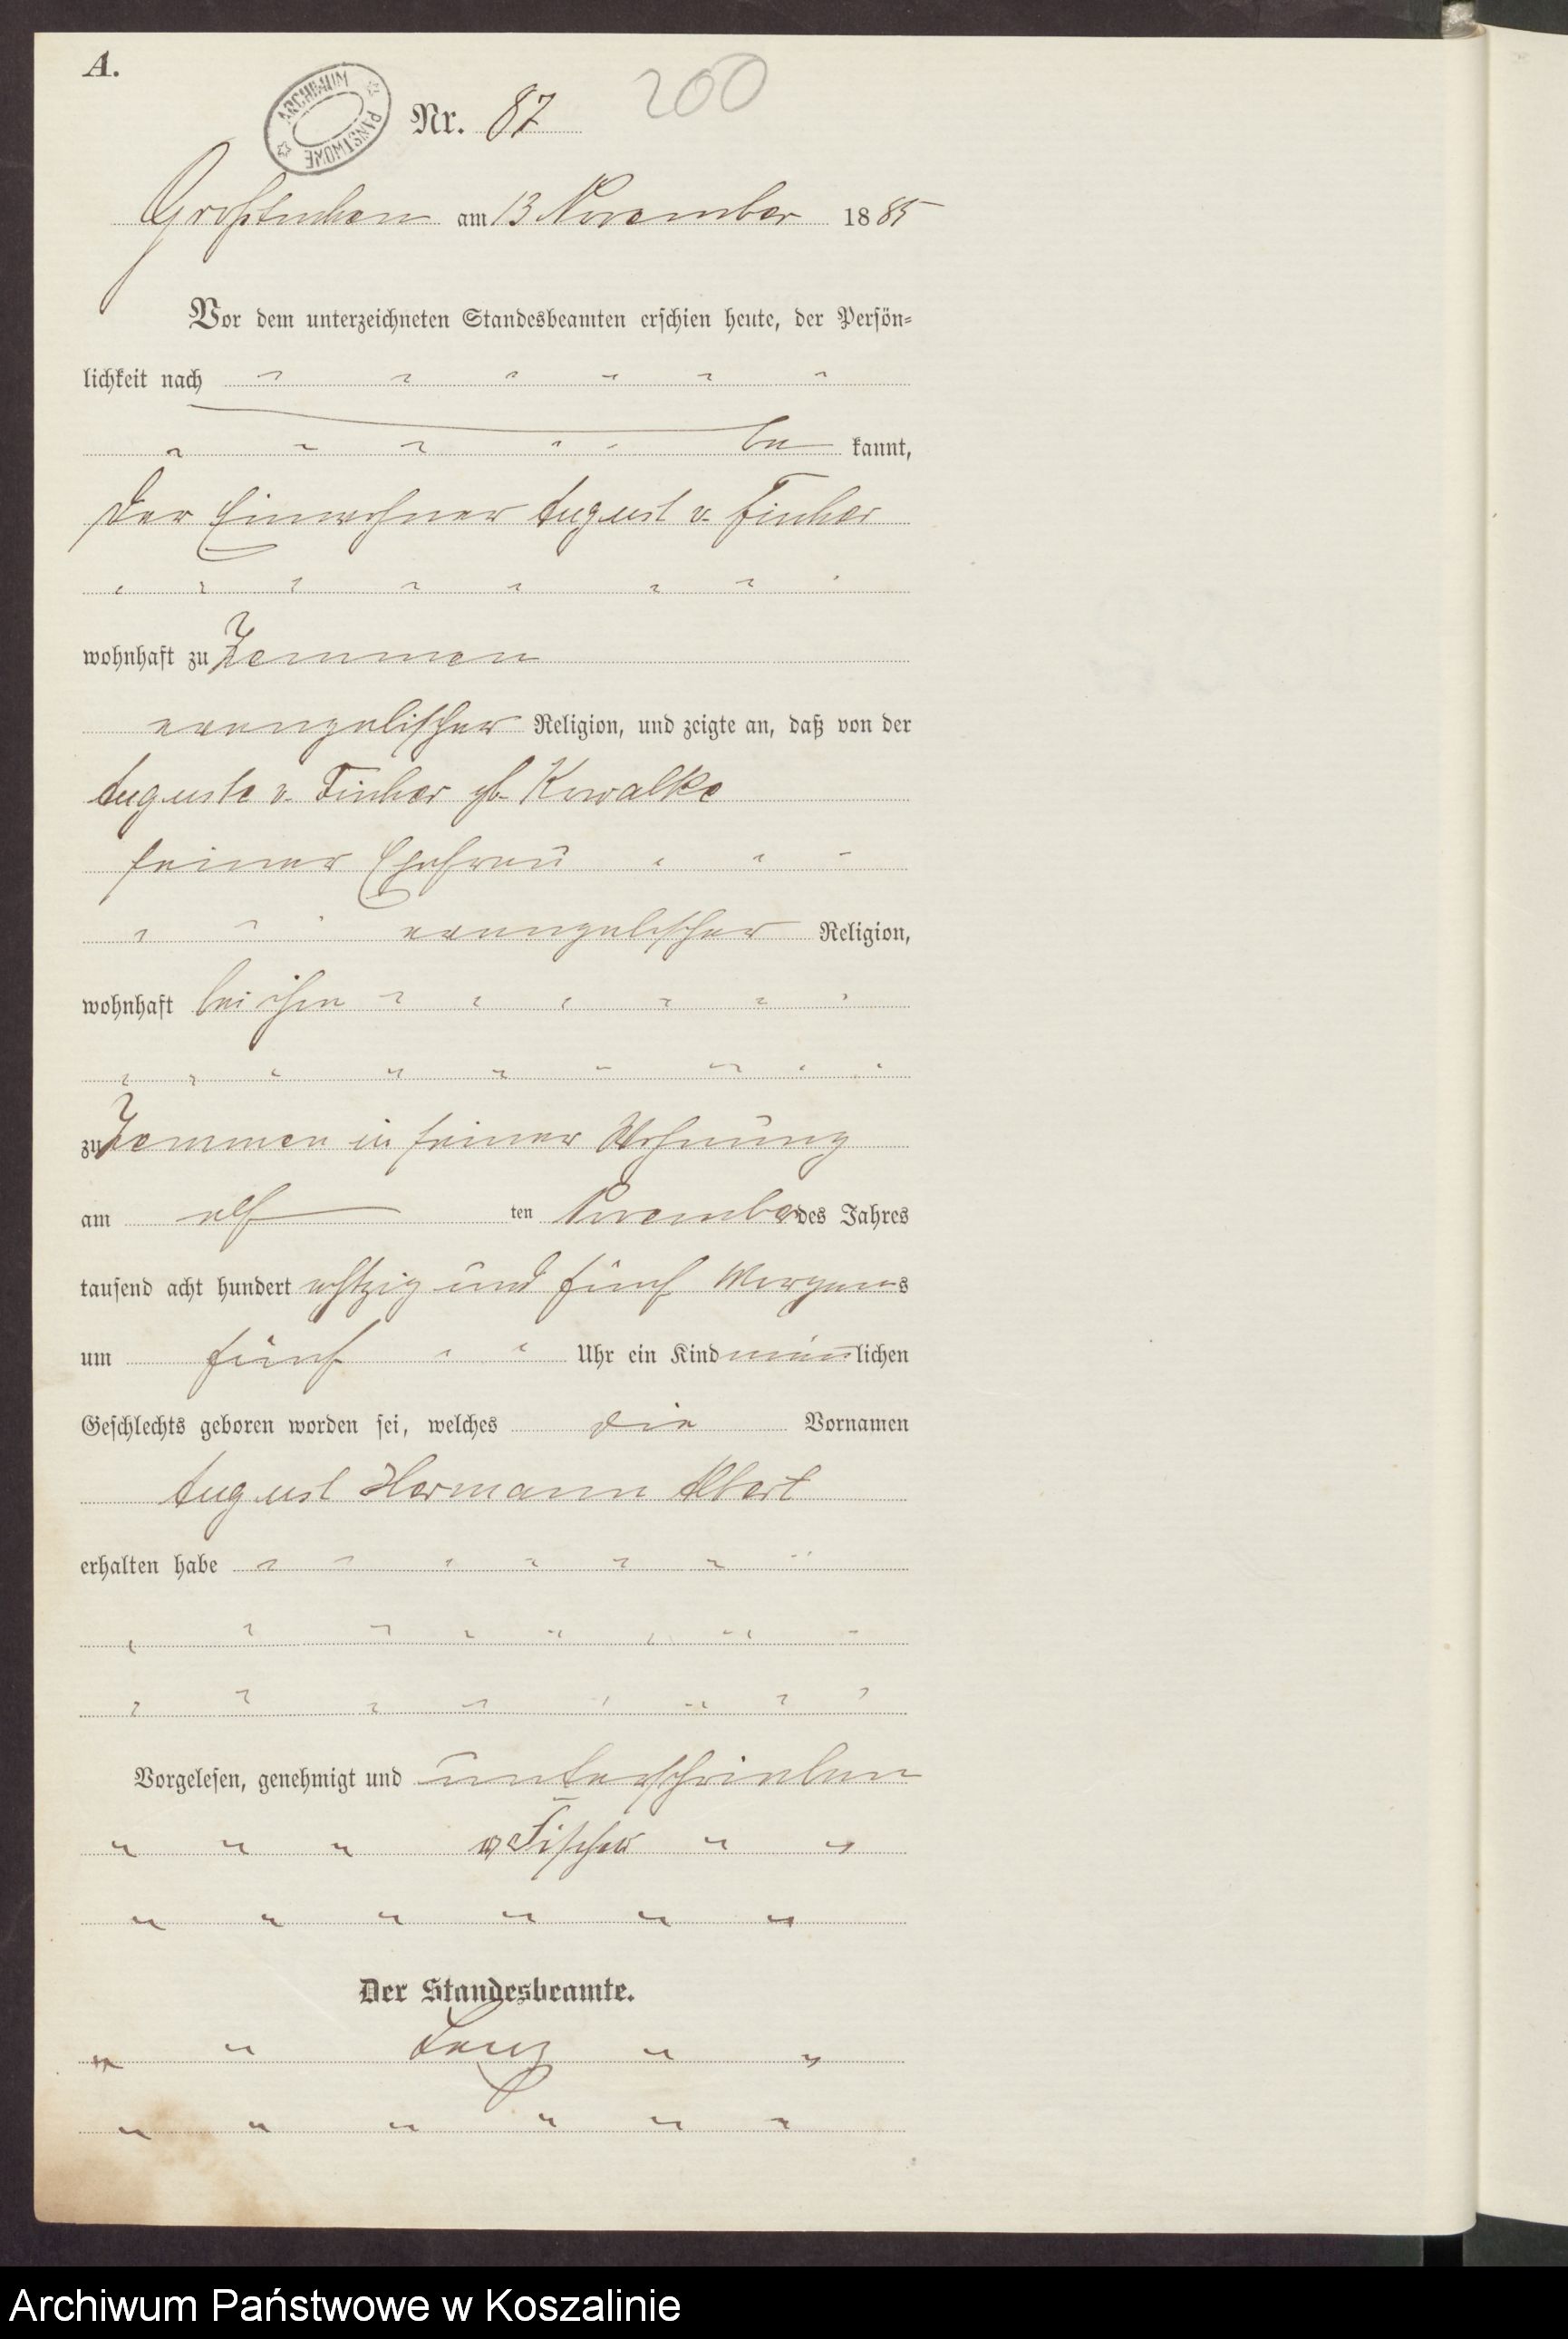 A.
ARCHIWUM PAŃSTWOWE
Nr. 87 200
Großtuchen am 13 November 1885
Vor dem unterzeichneten Standesbeamten erschien heute, der Persön-
lichkeit nach
be kannt,
der Einwohner August v.
wohnhaft zu Zemmen
evangelischer Religion, und zeigte an, daß von der
Auguste v. gb. Kowalke
seiner Ehefrau
evangelischer Religion,
wohnhaft bei ihm
zu Zemmen in seiner Wohnung
am elf ten November des Jahres
tausend acht hundert achtzig und fünf Morgens
um fünf Uhr ein Kind männlichen
Geschlechts geboren worden sei, welches die Vornamen
August Hermann Albert
erhalten habe
Vorgelesen, genehmigt und unterschrieben
Der Standesbeamte.
Archiwum Państwowe w Koszalinie